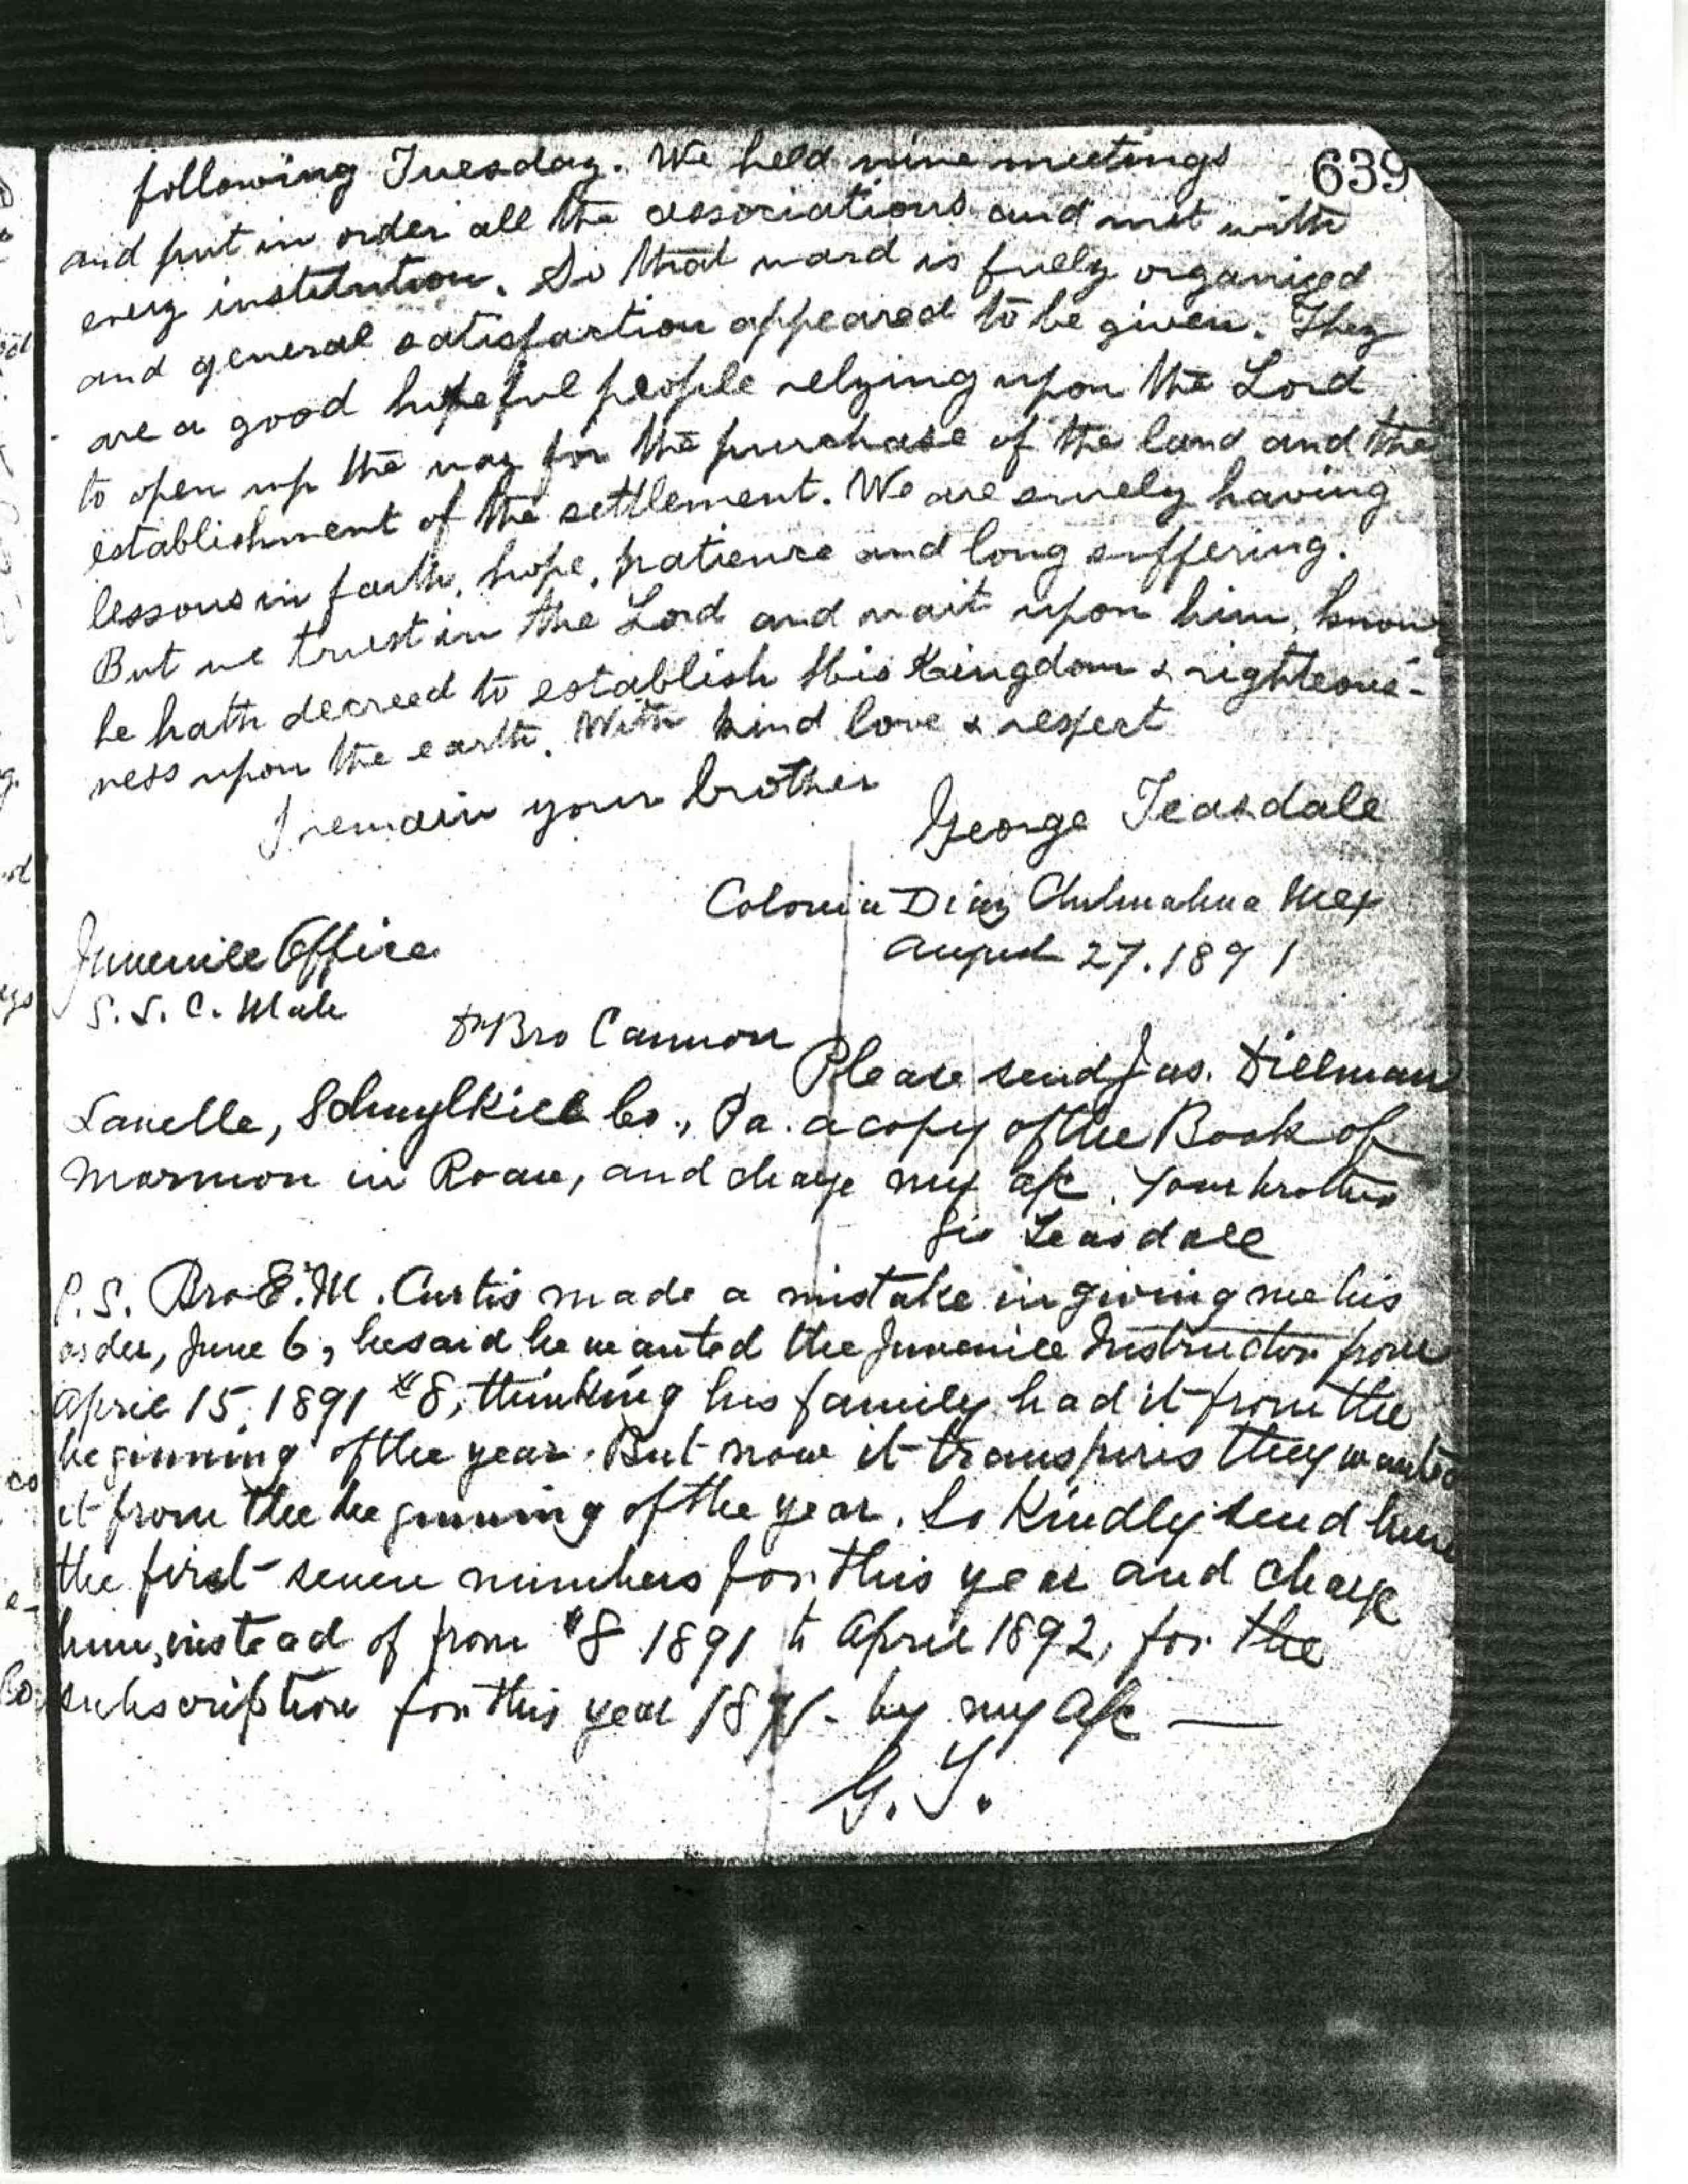 639
following Tuesday. We held nine meetings
and put in order all the associations and met with
every institution. So that ward is fully organized
and general satisfaction appeared to be given. They
are a good hopeful people relying upon the Lord
to open up the way for the purchase of the land and the
establishment of the settlement. We are surely having
lessons in faith, hope, patience and long suffering.
But we trust in the Lord and wait upon him, knowg
he hath decreed to establish His Kingdom & righteous-
ness upon the earth. With kind love & respect
I remain your brother
George Teasdale
Colonia Diaz Chihuahua Mex
August 27. 1891
Juvenile Office
S. L. C. Utah
Dr Bro Cannon
Please send Jas. Dillman
Lavelle, Schuylkill Co., Pa. a copy of the Book of
Mormon in Roan, and charge my a/c. Your brother
Geo Teasdale
P.S. Bro E. M. Curtis made a mistake in giving me his
order, June 6, he said he wanted the Juvenile Instructor from
April 15, 1891 #8, thinking his family had it from the
beginning of the year. But now it transpires they wanted
it from the beginning of the year. So Kindly send him
the first seven numbers for this year and charge
him, instead of from #8 1891 to April 1892, for the
subscription for this year 1891 - by my a/c —
G. T.